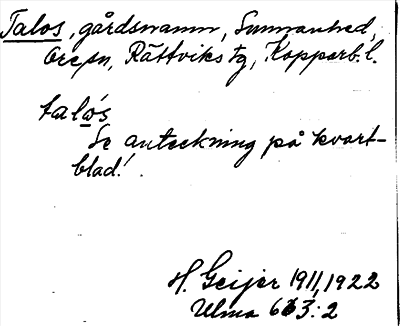 Talos, gårdsnamn, Sunnanhed,
Ore sn, Rättviks tg, Kopparb. l.
talós
Se anteckning på kvart-
blad!
H. Geijer 1911, 1922
Ulma 663:2